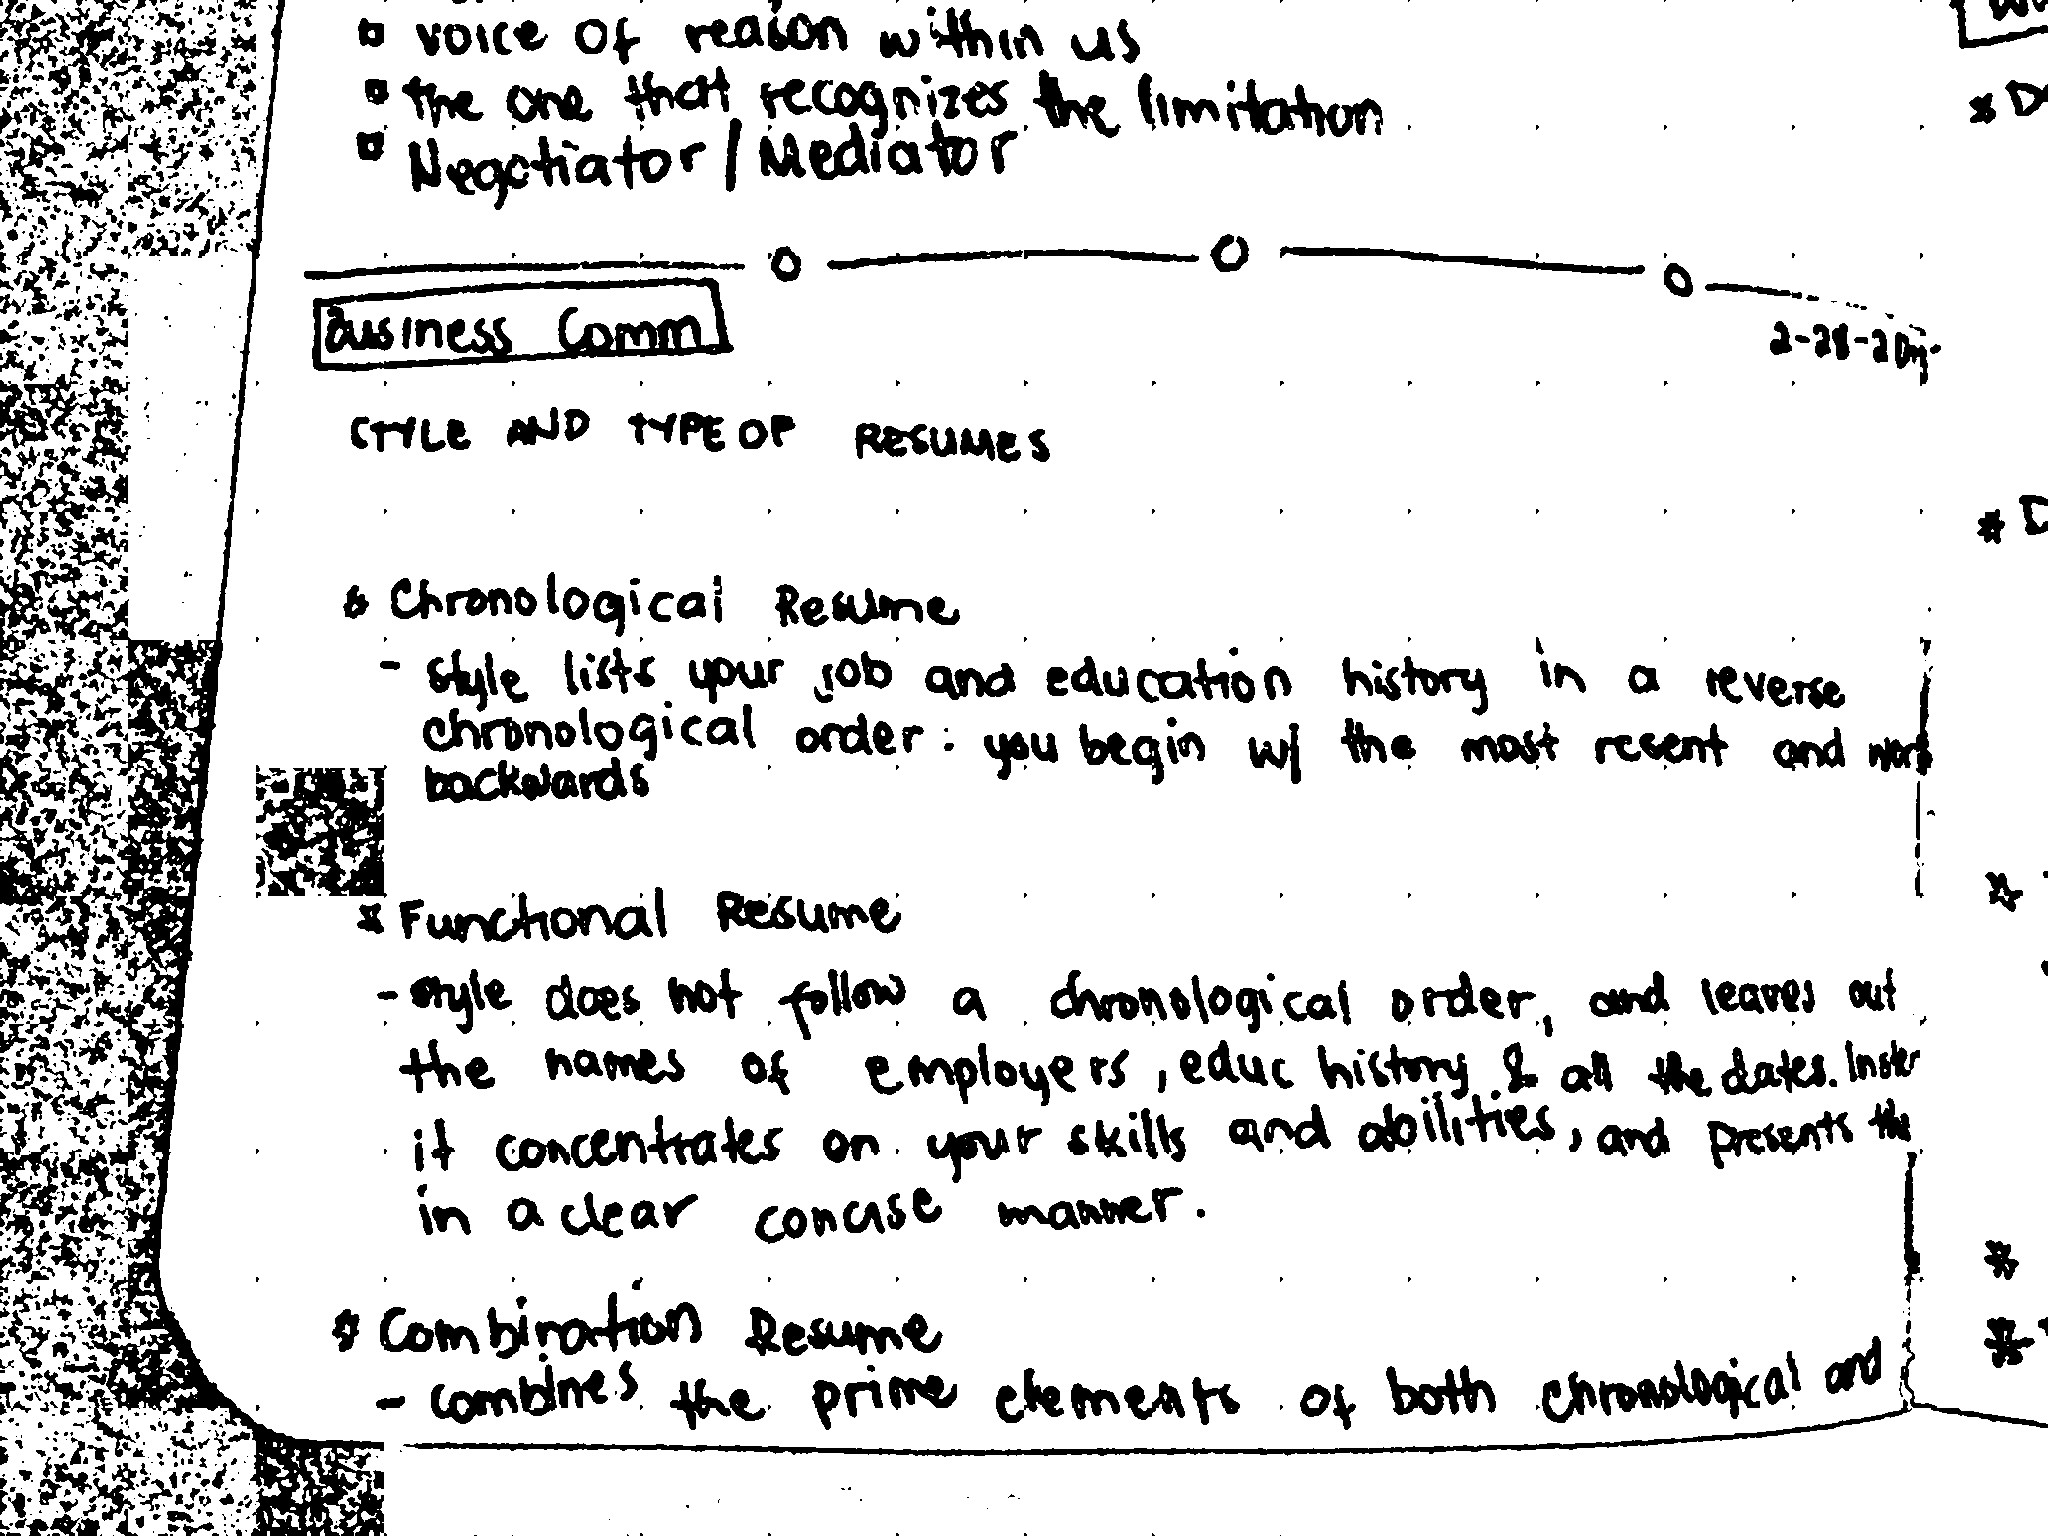 ▫ voice of reason within us
▫ the one that recognizes the limitation
▫ Negotiator / Mediator
Business Comm
STYLE AND TYPE OF RESUMES
* Chronological Resume
- style lists your job and education history in a reverse
chronological order : you begin w/ the most resent and work
backwards
* Functional Resume
- style does not follow a chronological order, and leaves out
the names of employers, educ history & all the dates.
it concentrates on your skills and abilities, and presents
in a clear concise manner.
* Combination Resume
- combines the prime elements of both chronological and